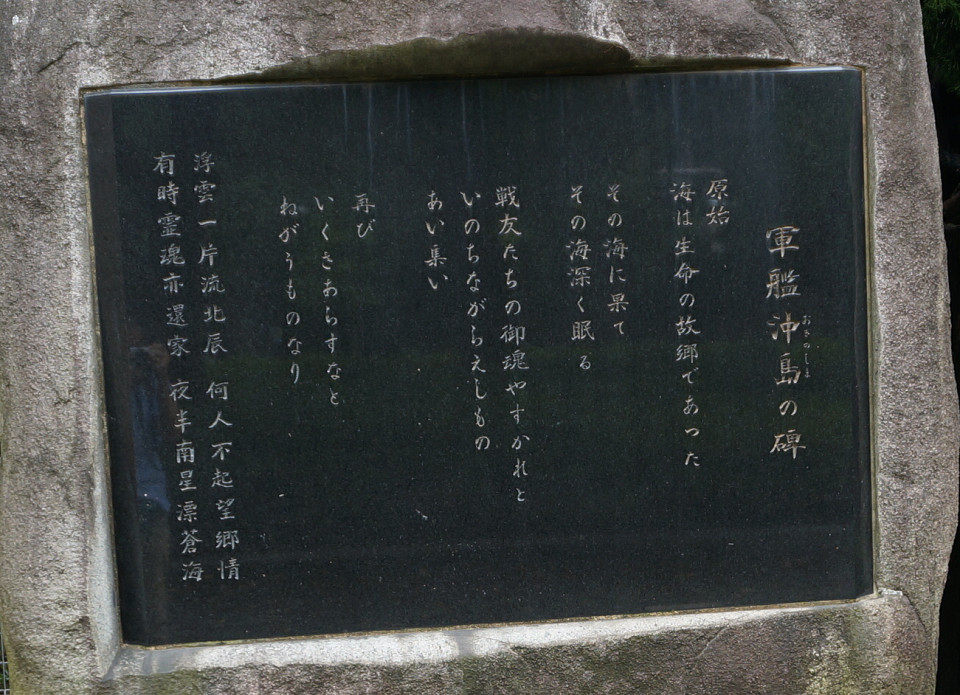 軍艦沖島の碑
おきのしま
原始
海は生命の故郷であった
その海に果て
その海深く眠る
戦友たちの御魂やすかれと
いのちながらえしもの
あい集い
再び
いくさあらすなと
ねがうものなり
浮雲一片流北辰 何人不起望郷情
有時霊魂亦還家 夜半南星漂蒼海